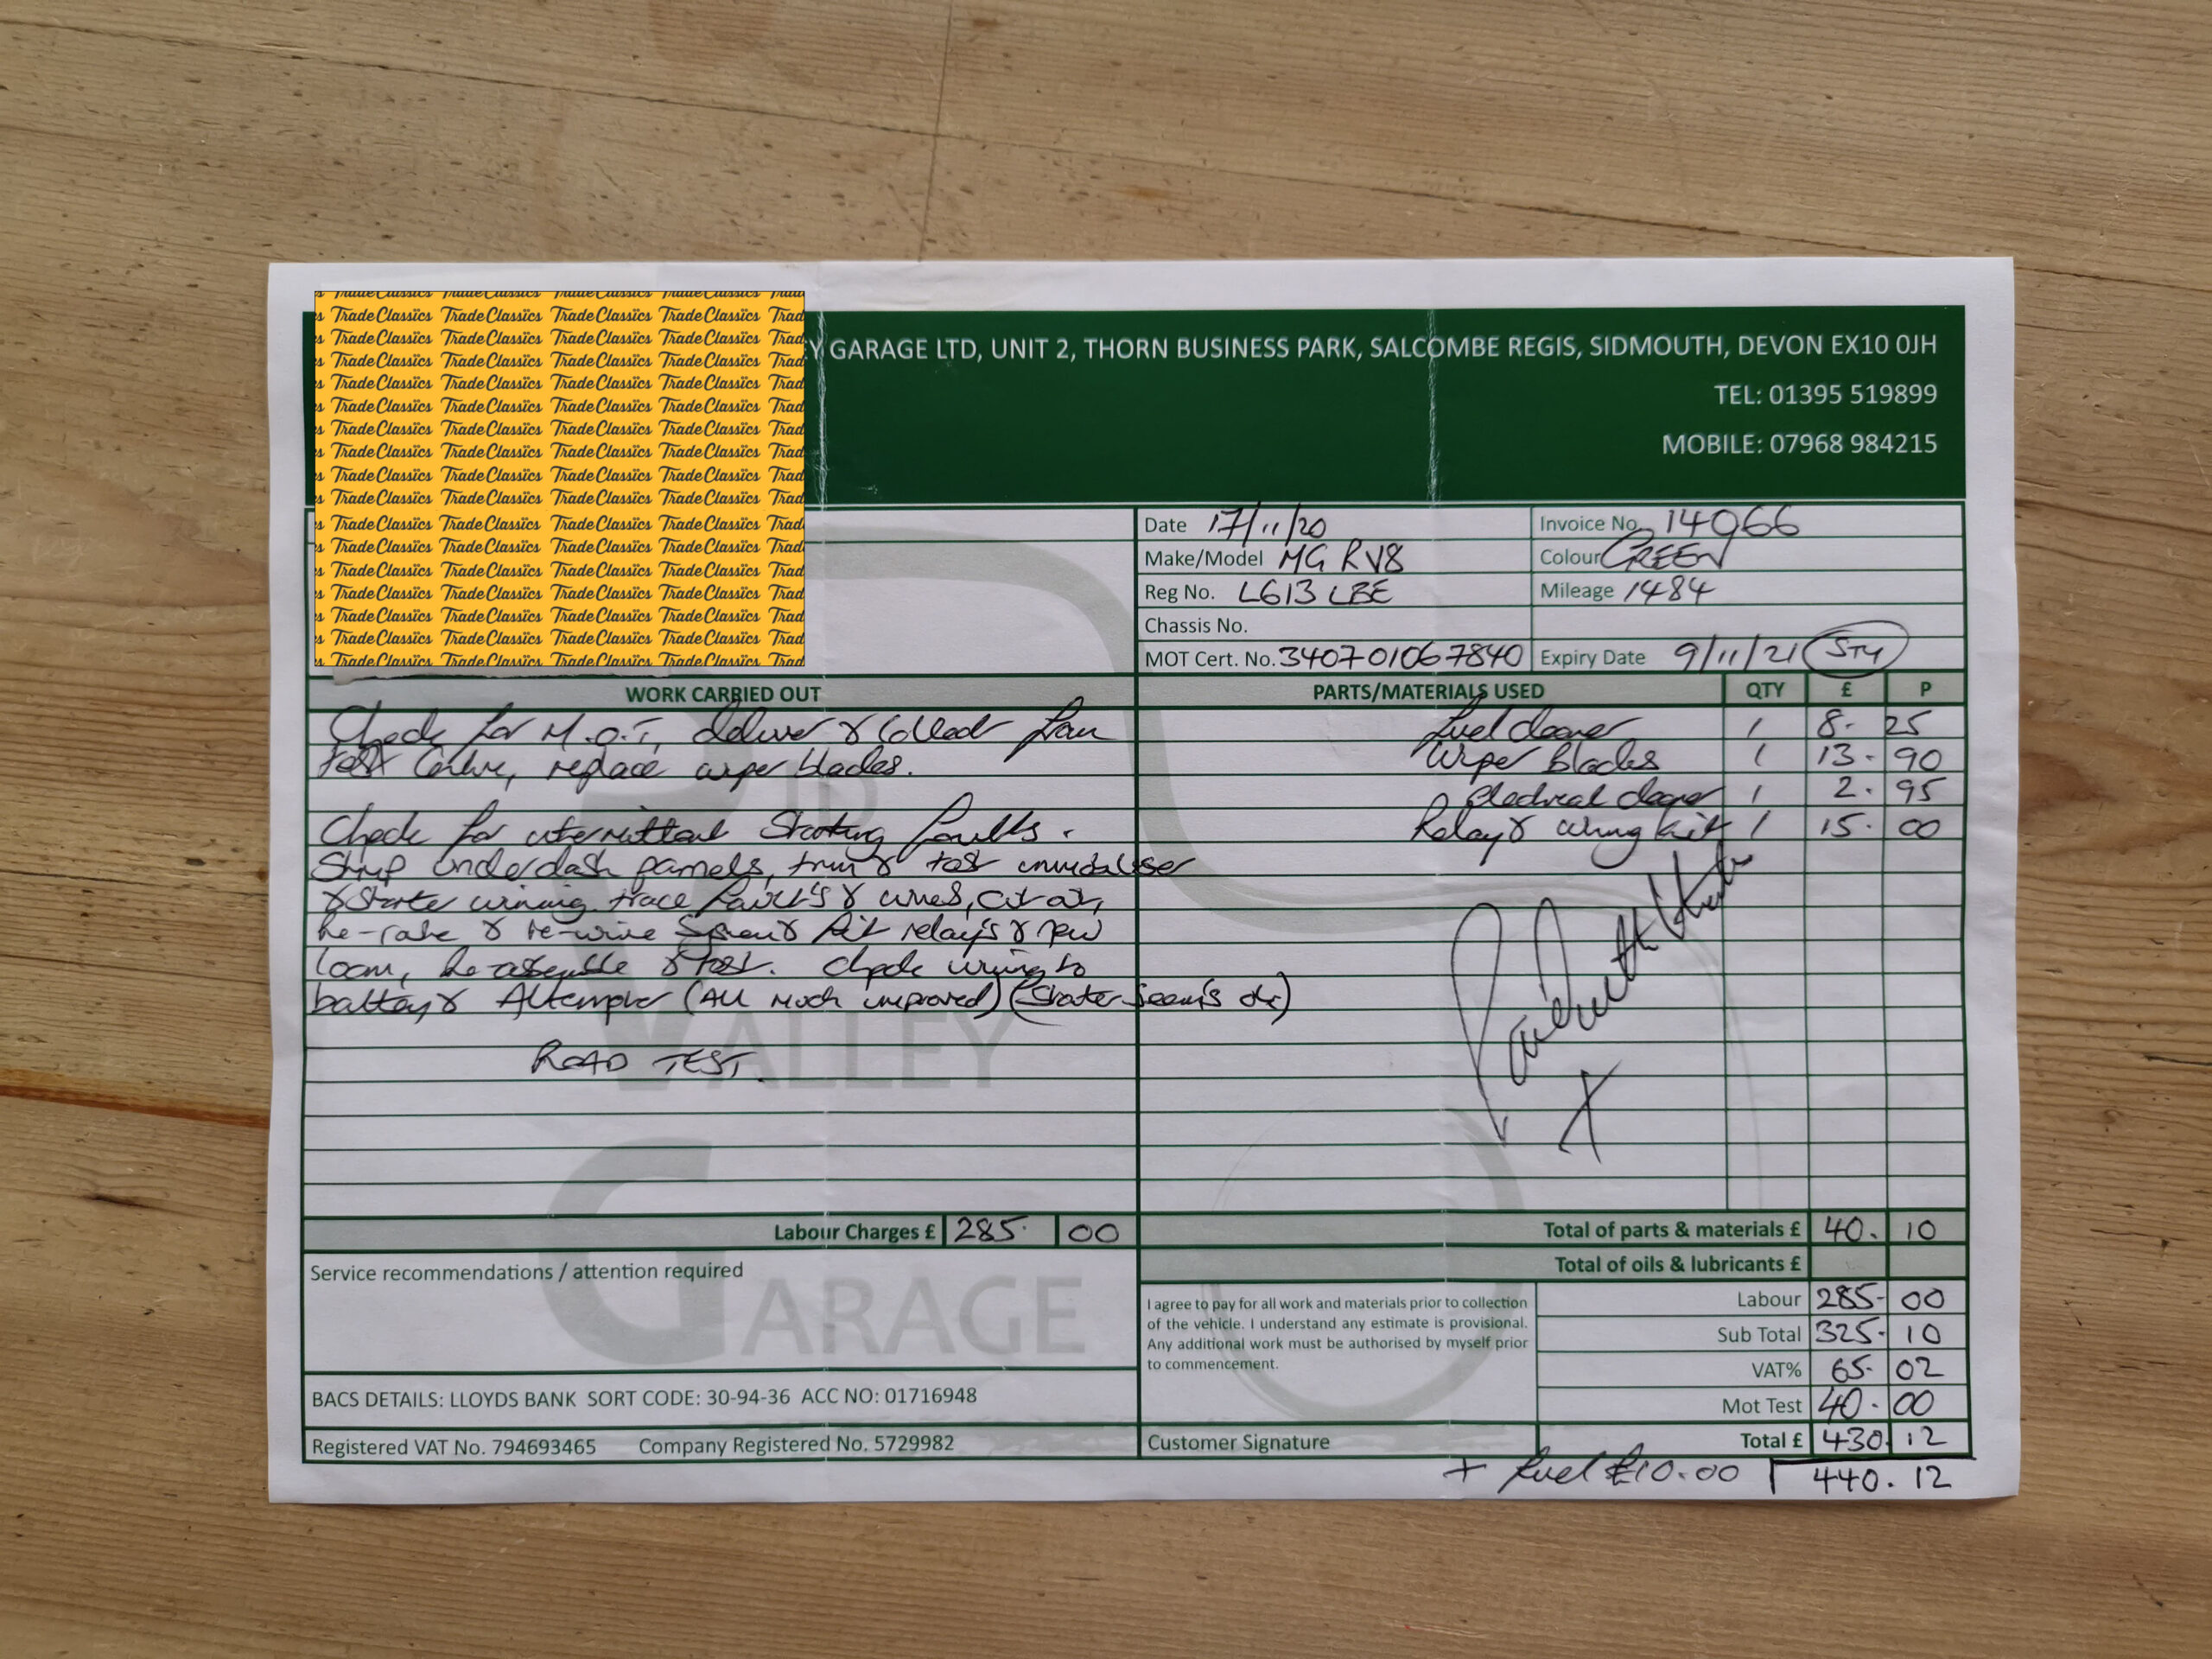 Trade Classics
Y GARAGE LTD, UNIT 2, THORN BUSINESS PARK, SALCOMBE REGIS, SIDMOUTH, DEVON EX10 0JH
TEL: 01395 519899
MOBILE: 07968 984215
Date 17/11/20 Invoice No. 14066
Make/Model MG RV8 Colour GREEN
Reg No. L613 LBE Mileage 1484
Chassis No.
MOT Cert. No. 340701067840 Expiry Date 9/11/21
WORK CARRIED OUT PARTS/MATERIALS USED QTY £ P
Check for M.O.T, deliver & collect from fuel cleaner 1 8. 25
test centre, replace wiper blades. Wiper Blades 1 13. 90
Electrical cleaner 1 2. 95
Check for intermittent Starting faults. Relay & wiring kit 1 15. 00
Strip underdash panels, trim & test immobaliser
& Starter wiring. trace faults & wires, cut out,
re-wire & fit relay's & new
loom, Re-assemble & test. Check wiring to
battery & Alternator (All much improved) (Starter seem's ok)
ROAD TEST.
VALLEY
GARAGE
Labour Charges £ 285. 00 Total of parts & materials £ 40. 10
Service recommendations / attention required Total of oils & lubricants £
I agree to pay for all work and materials prior to collection
of the vehicle. I understand any estimate is provisional.
Any additional work must be authorised by myself prior
to commencement.
Labour 285- 00
Sub Total 325- 10
VAT% 65- 02
Mot Test 40- 00
BACS DETAILS: LLOYDS BANK SORT CODE: 30-94-36 ACC NO: 01716948
Registered VAT No. 794693465 Company Registered No. 5729982 Customer Signature Total £ 430. 12
+ fuel £10.00 440. 12